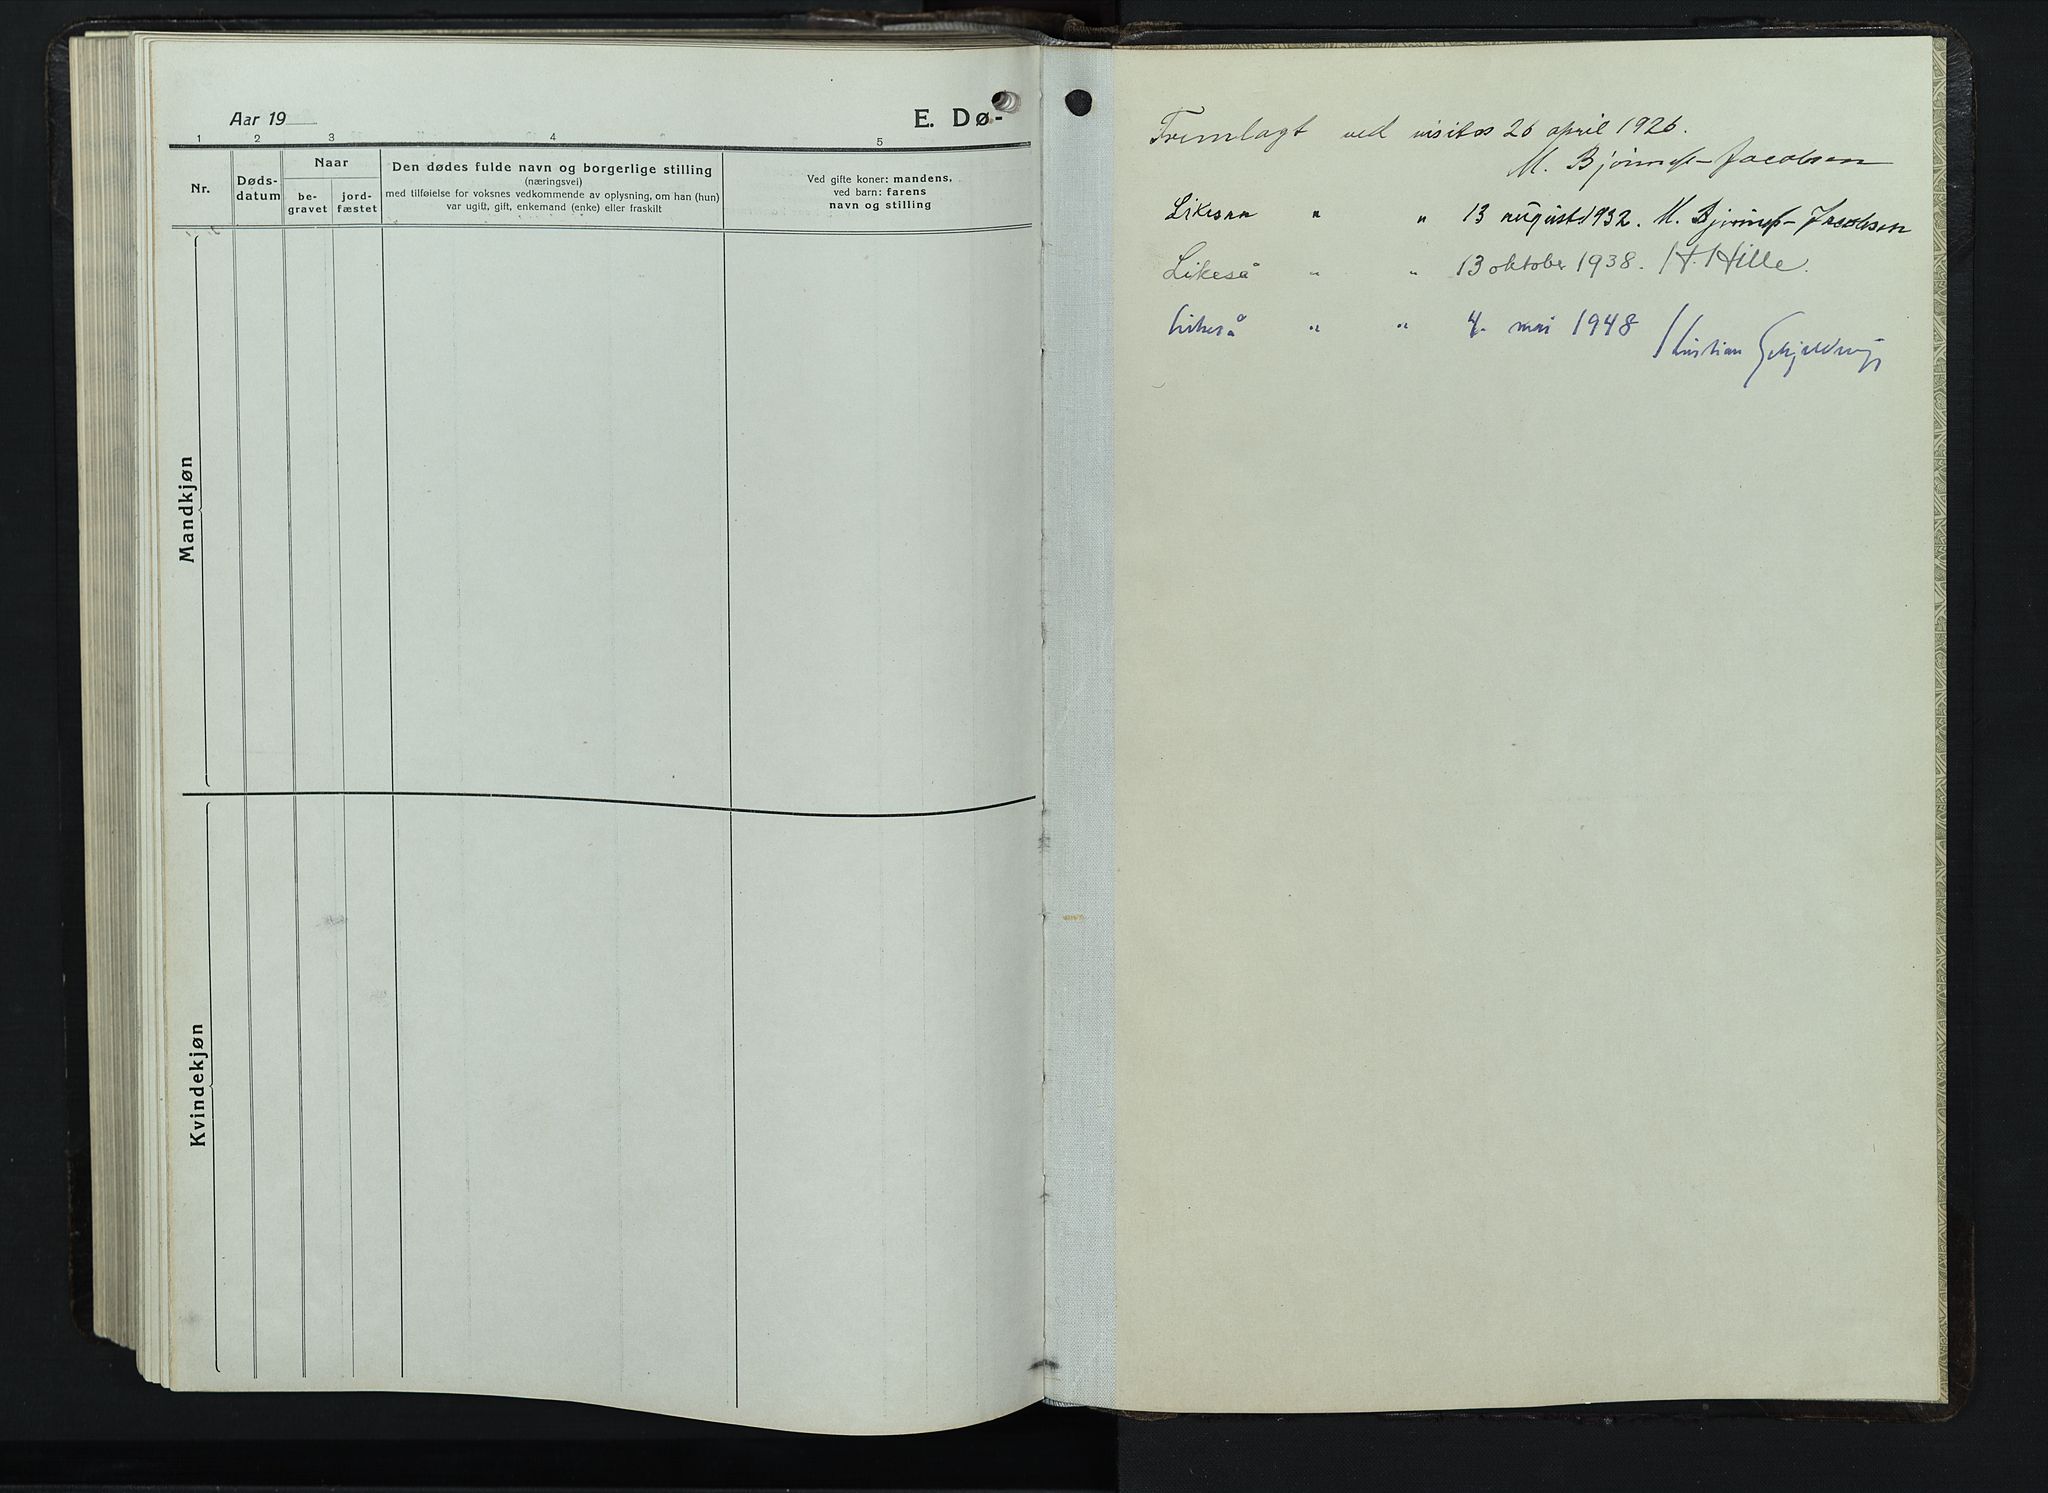 Aar 19
E. Dø-
1 2 3 4 5
Nr.
Døds-
datum
Naar
be-
gravet
jord-
fæstet
Den dødes fulde navn og borgerlige stilling
(næringsvei)
med tilføielse for voksnes vedkommende av oplysning, om han (hun)
var ugift, gift, enkemand (enke) eller fraskilt
Ved gifte koner: mandens,
ved barn: farens
navn og stilling
Mandkjøn
Kvindekjøn
Fremlagt ved visitas 26 april 1926.
M. Bjønnes-Jacobsen
Likesaa " " 13 august 1932. M. Bjønnes-Jacobsen
Likeså " " 13 oktober 1938. H. Hille.
Likeså " " 4. mai 1948
Kristian Schjelderup